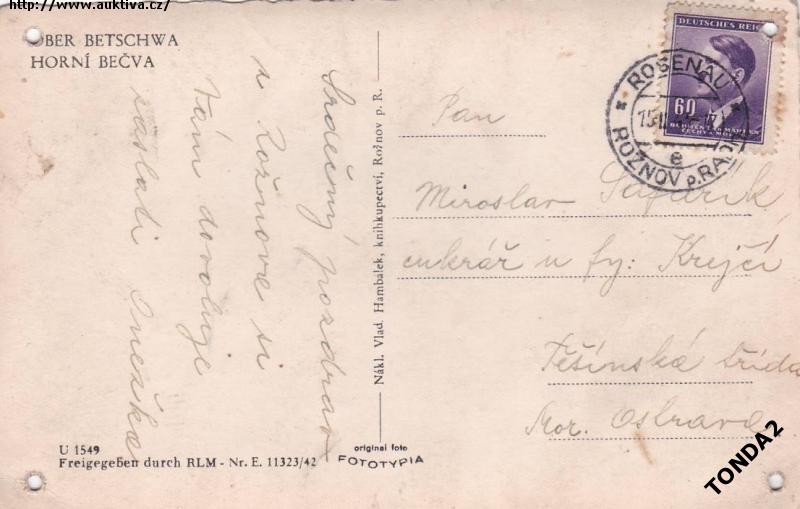 http://www.auktiva.cz/
OBER BETSCHWA
HORNÍ BEČVA
Srdečný pozdrav
z Rožnova si
Vám dovoluje
zaslati Anežka
U 1549
Freigegeben durch RLM - Nr. E. 11323/42
original foto
FOTOTYPIA
Nákl. Vlad. Hambálek, knihkupectví, Rožnov p. R.
DEUTSCHES REICH
60
BÖHMEN UND MÄHREN
ČECHY A MORAVA
ROSENAU
e
ROŽNOV p. RADH.
Pan
Miroslav Šafařík
cukrář u fy: Krejčí
Těšínská třída
Mor. Ostrava
TONDA2